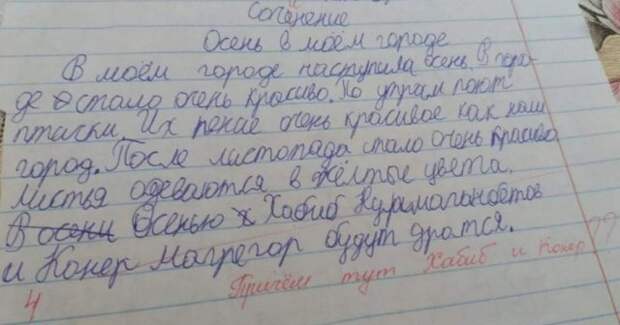 Сочинение
Осень в моём городе
В моём городе наступила осень. В горо-
де стало очень красиво. По утрам поют
птички. Их пение очень красивое как наш
город. После листопада стало очень красиво
Листья одеваются в жёлтые цвета.
В осени Осенью Хабиб Нурмагомедов
и Конер Магрегор будут дратся.
Причём тут Хабиб и Конер ??
4